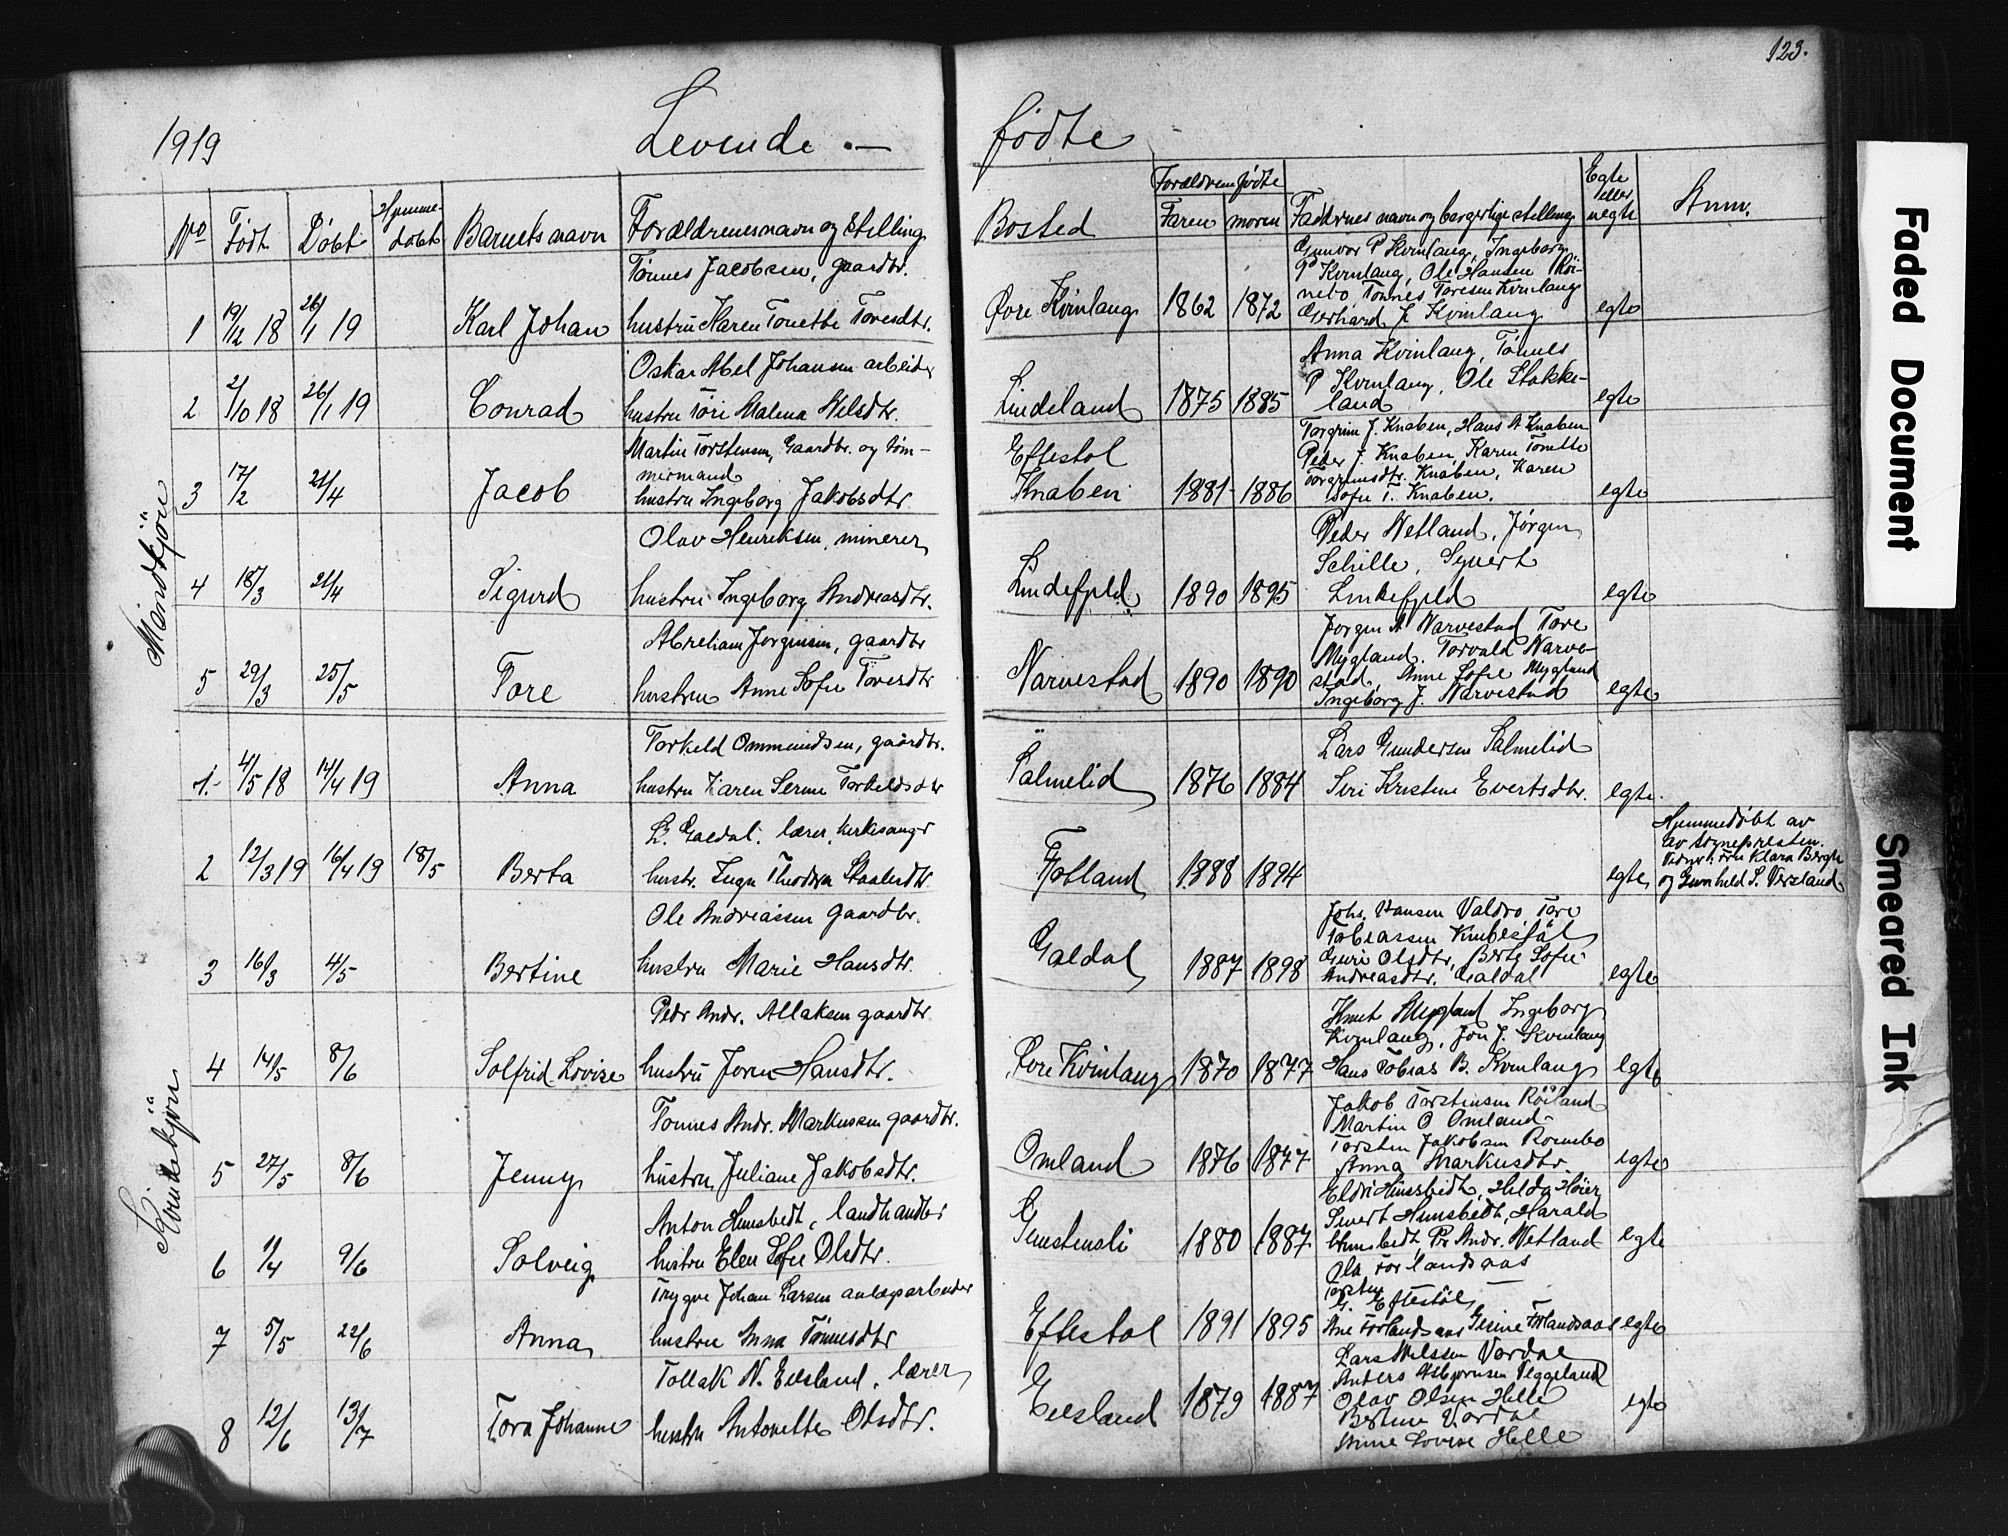 123.
1919 Levende.— fødte
No Født Døbt Hjemme-døbt Barnets navn Forældrenes navn og stilling Bosted Forældrene fødte Faren moren Faddernes navn og borgerlige stilling Egte eller uegte Anm.
Mandkjön
Tønnes Jacobsen, gaardbr.
1 19/12 18 26/1 19 Karl Johan hustru Karen Tonette Toresdtr.
Øvre Kvinlaug 1862 1872
Gunvor P Kvinlaug, Ingeborg
P Kvinlaug, Ole Hansen Röi-
nebo, Tönnes Toresen Kvinlaug
Gerhard J. Kvinlaug egte
Oskar Abel Johansen arbeider
2 2/10 18 26/1 19 Conrad hustru Tore Malena Nilsdtr.
Lindeland 1875 1885
Anna Kvinlaug, Tönnes
P Kvinlaug, Ole Stakke-
land egte
Martin Torstensen, Gaardbr. og töm-
mermand
3 17/2 21/4 Jacob hustru Ingeborg Jakobsdtr.
Eftestol
Knaben 1881 1886
Torgrim J. Knaben, Hans A Knaben
Peder J. Knaben, Karen Tonette
Torgrimsdtr. Knaben, Karen
Sofie T. Knaben. egte
Olav Henriksen, minerer
4 18/3 21/4 Sigurd hustru Ingeborg Andreasdtr.
Lindefjeld 1890 1895
Peder Netland, Jörgen
Schille, Syvert
Lindefjeld egte
Abreham Jorgensen, gaardbr
5 29/3 25/5 Tore hustru Anne Sofie Toresdtr
Narvestad 1890 1890
Jorgen A Narvestad Tore
Mygland. Torvald Narve-
stad, Anne Sofie Mygland
Ingeborg J. Narvestad egte
Kvindekjön
Torkeld Ommundsen, gaardbr.
1. 4/5 18 14/4 19 Anna hustru Karen Serine Torkeldsdtr
Salmelid 1876 1884
Lars Gundersen Salmelid
Siri Kristine Evertsdtr. egte.
L. Galdal, lærer, kirkesanger
2 12/3 19 16/4 19 18/5 Berta hustr. Inga Theodora Staalesdtr
Fjotland 1888 1894 egte
Hjemmedöbt av
av sognepresten.
Vidner: fru Klara Bergh
og Gunhild S. Versland
Ole Andreassen gaardbr.
3 16/3 4/5 Bertine hustru Marie Hansdtr.
Galdal 1887 1898
Johs. Hansen Valdro Tore
Tobiassen Knibesjöl
Guri Olsdtr, Berte Sofie
Andreasdtr. Galdal egte
Pedr Andr. Allaksen gaardbr
4 14/5 8/6 Solfrid Lovise hustru Joren Hansdtr.
Øvre Kvinlaug 1870 1877
Knut Mygland Ingeborg
Kvinlaug, Jon J. Kvinlaug
Hans Tobias B. Kvinlaug egte
Tonnes Andr. Markussen gaardbr.
5 27/5 8/6 Jenny hustru Juliane Jakobsdtr.
Omland 1876 1877
Jakob Torstensen Röiland
Martin O Omland
Torsten Jakobsen Roinebo
Anna Markusdtr. egte
Anton Hunsbedt, landhandler
6 1/4 9/6 Solveig hustru Elen Sofie Olsdtr.
1880 1887
Eldri Hunsbedt, Helda Höier
Sivert Hunsbedt, Harald
Hunsbedt Pr Andr. Netland
Ola Forlandsaas egte
Trygve Johan Larsen anlægsarbeider
7 5/5 22/6 Anna hustru Anna Tønnesdtr
Eftestol 1891 1895
Torsten
G. Eftestöl
Ane Forlandsaas Gesine Förlandsaas egte
Tollak N. Eiesland, lærer
8 12/6 13/7 Tora Johanne hustru Antonette Olsdtr.
Eiesland 1879 1887
Lars Nilssen Vordal
Anders Asbjornsen Veggeland
Olav Olsen Helle
Bertine Vordal
Anne Lovise Helle egte
Faded Document
Smeared Ink